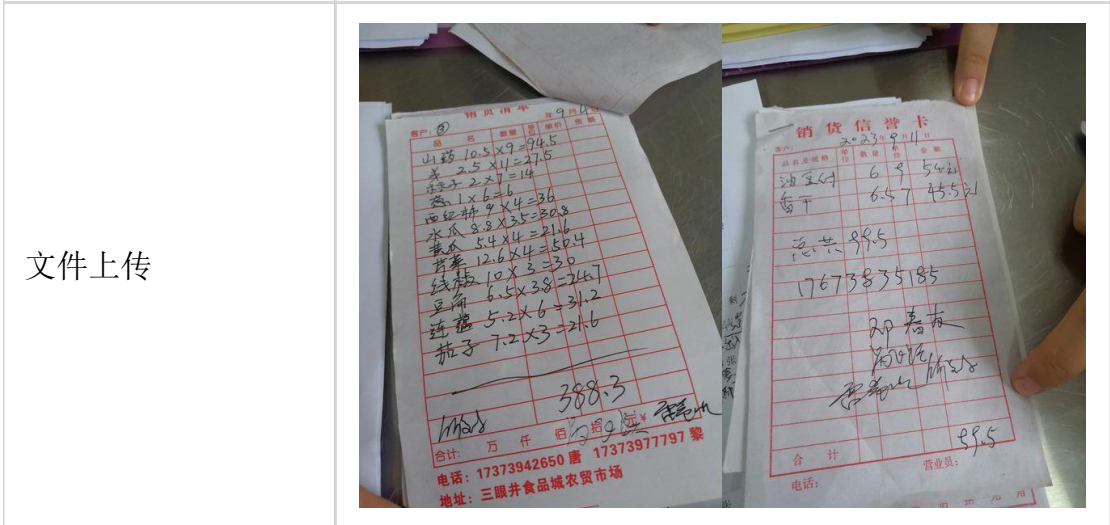 文件上传
销货清单
年9月4日
客户:③
品名 数量 单位 单价 金额
山药 10.5×9=94.5
2.5×11=27.5
2×7=14
葱 1×6=6
西红柿 9×4=36
水瓜 8.8×3.5=30.8
黄瓜 5.4×4=21.6
芹菜 12.6×4=50.4
线椒 10×3=30
豆角 6.5×3.8=24.7
莲藕 5.2×6=31.2
茄子 7.2×3=21.6
388.3
合计: 万 仟 佰 拾 元¥
电话:17373942650 唐 17373977797 黎
地址:三眼井食品城农贸市场
销货信誉卡
2023年9月11日
客户:
品名及规格 单位 数量 单价 金额
油豆付 6 9 54元
香干 6.5 7 45.5元
总共 99.5
17673835185
邓
99.5
合计
营业员:
电话: